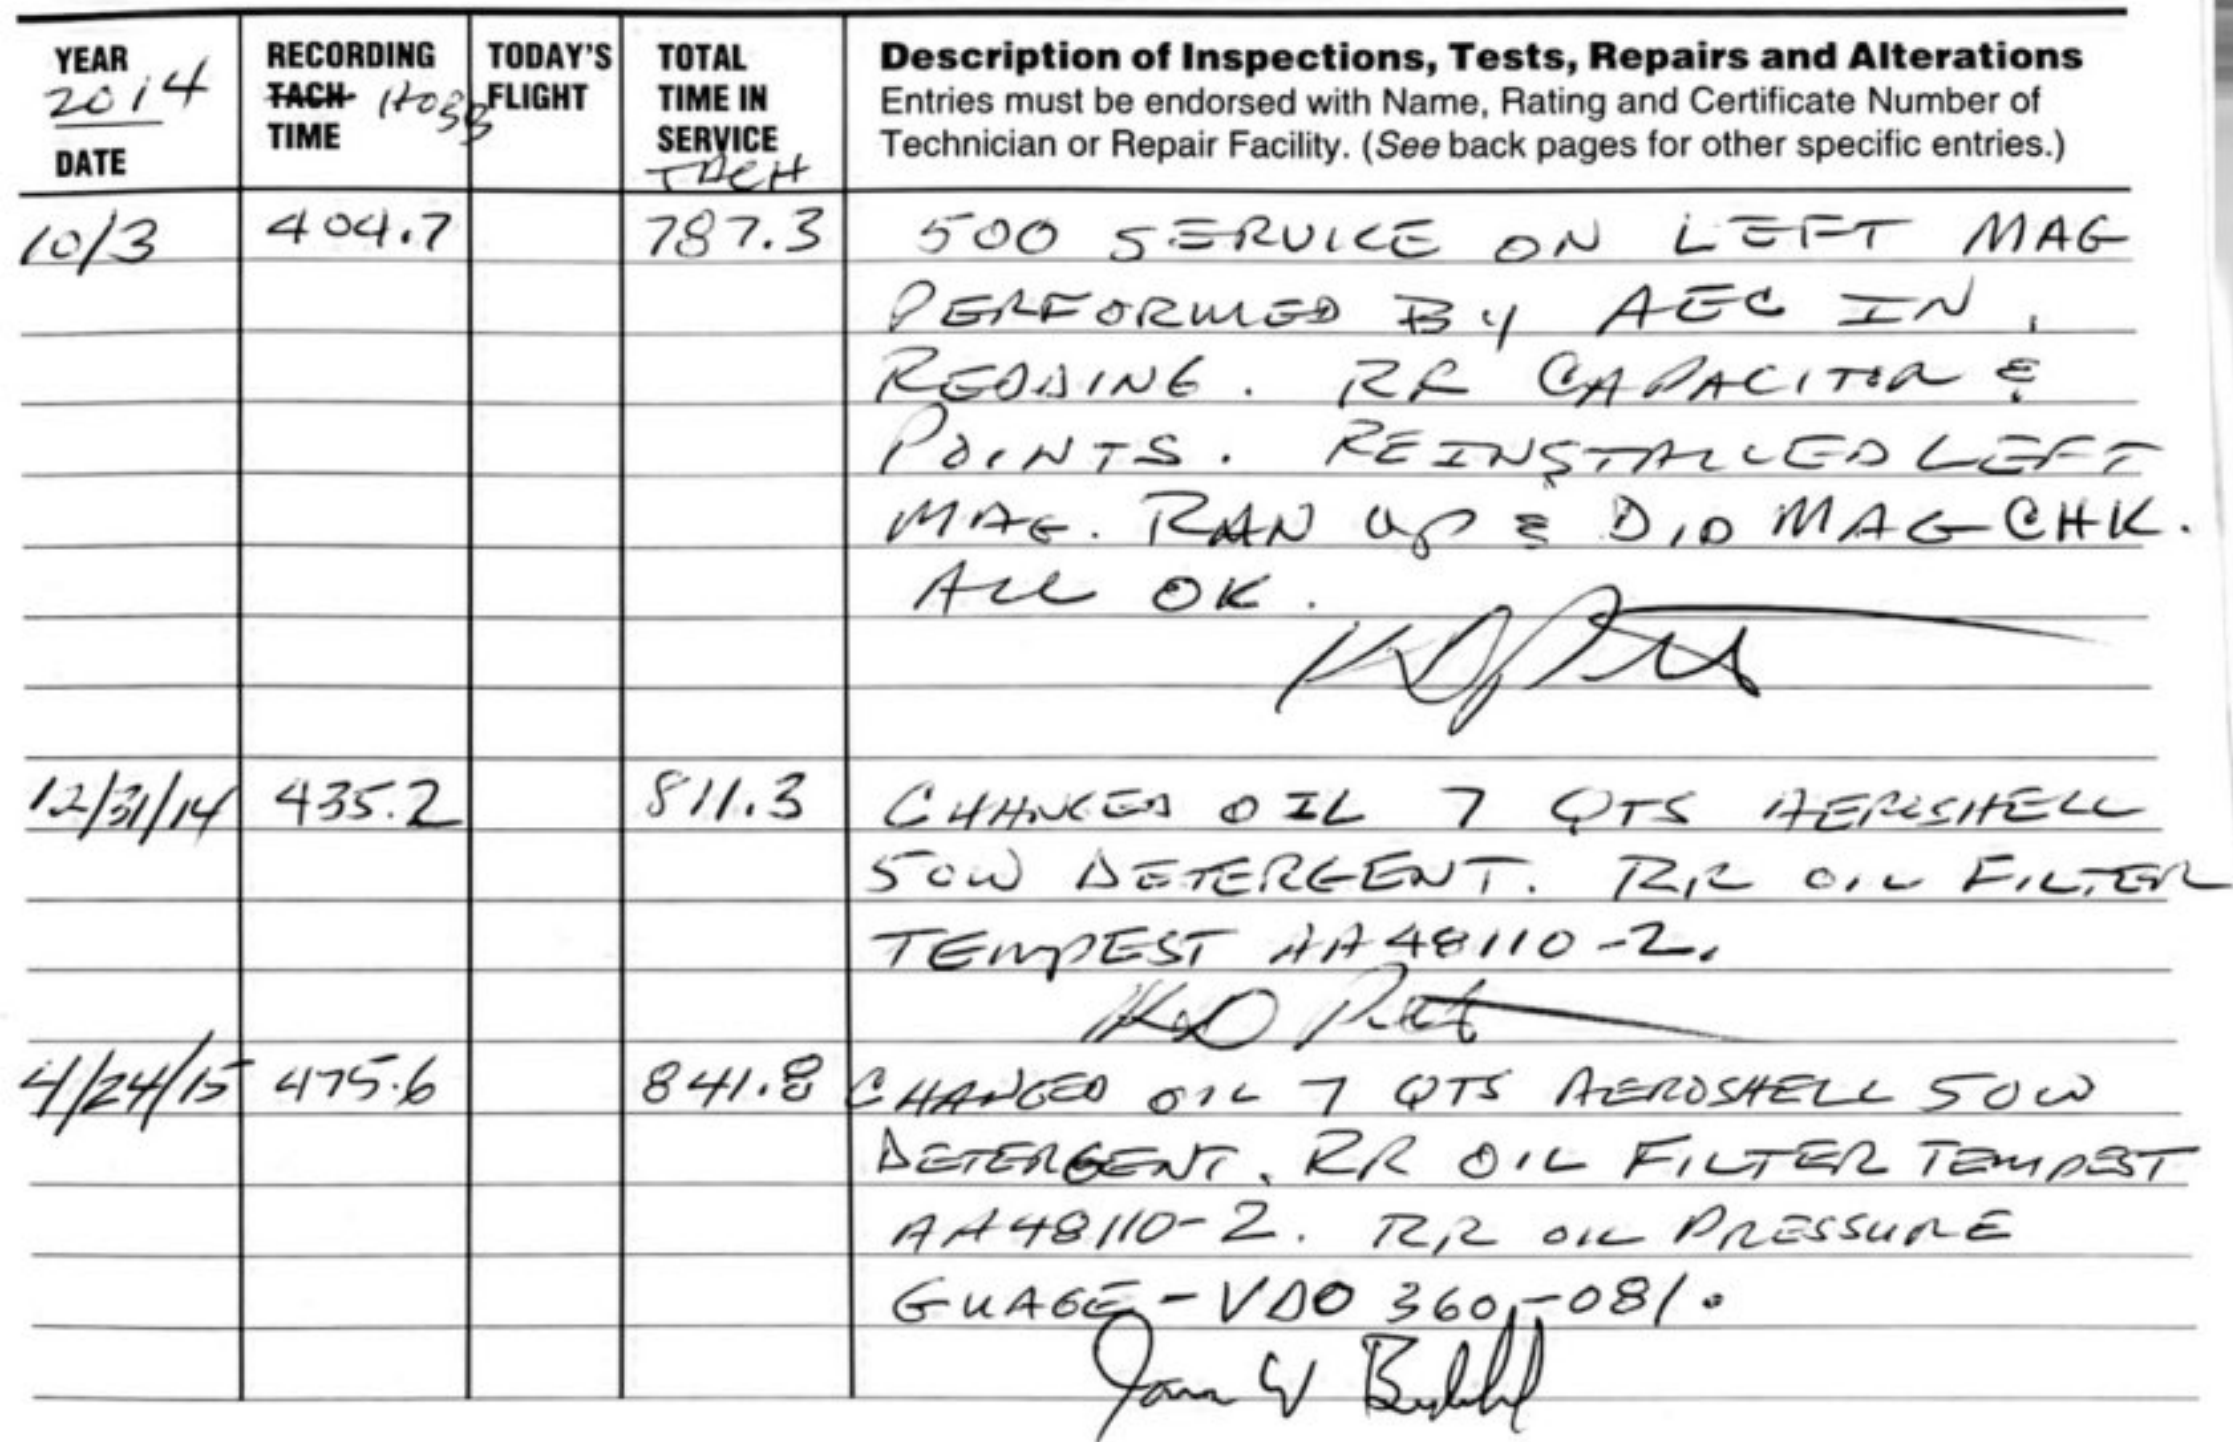 YEAR 2014 DATE
RECORDING TACH HOBB TIME
TODAY'S FLIGHT
TOTAL TIME IN SERVICE TACH
Description of Inspections, Tests, Repairs and Alterations
Entries must be endorsed with Name, Rating and Certificate Number of
Technician or Repair Facility. (See back pages for other specific entries.)
10/3 404.7 787.3 500 SERVICE ON LEFT MAG
PERFORMED BY AEC IN
REDDING. RR CAPACITOR &
POINTS. REINSTALLED LEFT
MAG. RAN UP & DID MAG CHK.
ALL OK.
12/31/14 435.2 811.3 CHANGED OIL 7 QTS AEROSHELL
50W DETERGENT. RR OIL FILTER
TEMPEST AA48110-2.
4/24/15 475.6 841.8 CHANGED OIL 7 QTS AEROSHELL 50W
DETERGENT. RR OIL FILTER TEMPEST
AA48110-2. RR OIL PRESSURE
GUAGE - VDO 360-081.